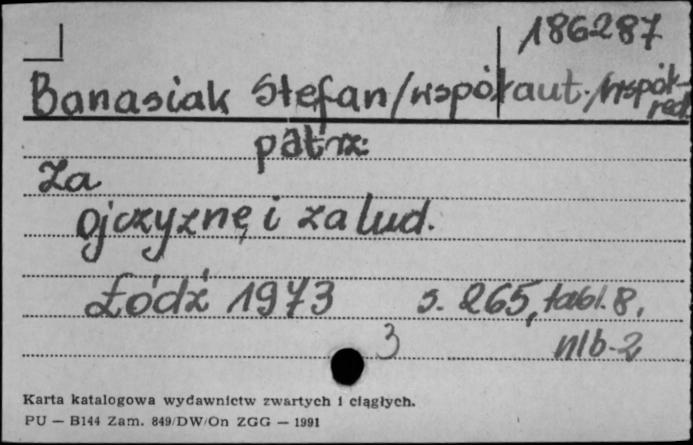 186287
Banasiak Stefan/współaut./współ-
red.
patrz:
Za
ojczyznę i za lud.
Łódź 1973 s. 265, tabl. 8,
nlb-2
3
Karta katalogowa wydawnictw zwartych i ciągłych.
PU — B144 Zam. 849/DW/On ZGG — 1991